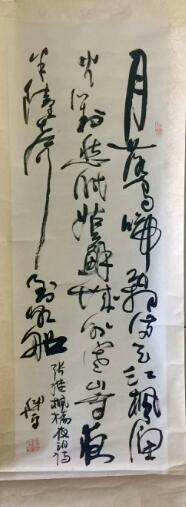 月落烏啼霜滿天江楓漁
火對愁眠姑蘇城外寒山寺夜
半鐘聲到客船
張繼楓橋夜泊詩